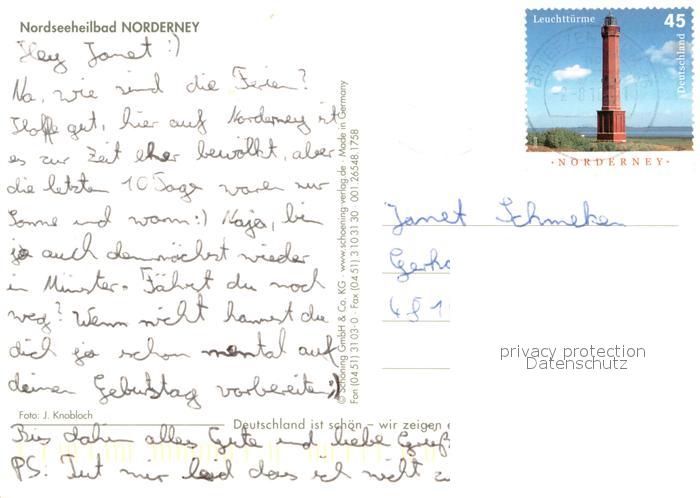 Nordseeheilbad NORDERNEY
Hey Janet :)
Na, wie sind die Ferien?
Hoffe gut, hier auf Norderney ist
es zur Zeit eher bewölkt, aber
die letzten 10 Tage waren nur
Sonne und warm :) Naja, bin
ja auch demnächst wieder
in Münster. Fährst du noch
weg? Wenn nicht kannst du
dich ja schon mental auf
deinen Geburtstag vorbereiten ;)
Foto: J. Knobloch
Deutschland ist schön – wir zeigen
Bis dahin alles Gute und liebe Grüß
PS: Tut mir leid dass ich nicht
© Schöning GmbH & Co. KG · www.schoening-verlag.de · Made in Germany
Fon (04 51) 31 03-0 · Fax (04 51) 3 10 31 30 · 001 26548.1758
Leuchttürme 45
Deutschland
·NORDERNEY·
Janet Schmeken
Gerh
481
privacy protection
Datenschutz